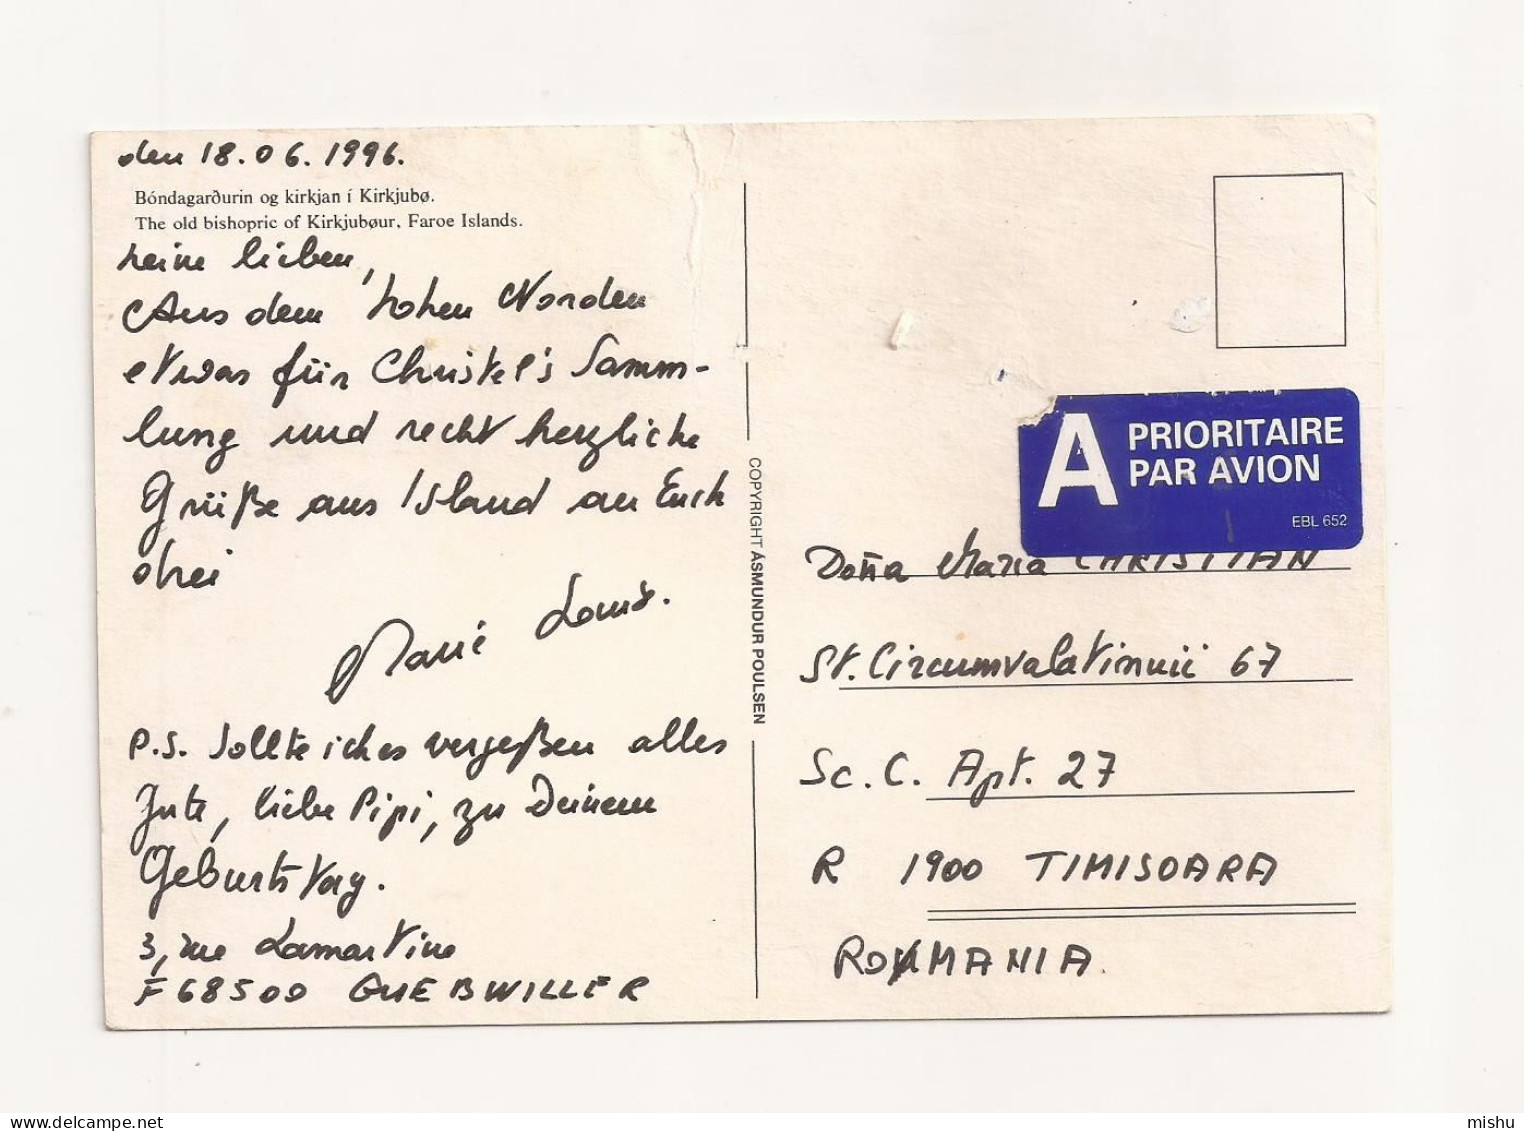 den 18.06.1996.
Bóndagarðurin og kirkjan í Kirkjubø.
The old bishopric of Kirkjubøur, Faroe Islands.
Meine lieben,
Aus dem hohen Norden
etwas für Christel's Samm-
lung und recht herzliche
Grüße aus Island an Euch
drei
Marie Louise.
P.S. Sollte ich es vergeßen alles
Gute, liebe Pipi, zu Deinem
Geburtstag.
3, rue Lamartine
F 68500 GUEBWILLER
COPYRIGHT ÁSMUNDUR POULSEN
A PRIORITAIRE
PAR AVION
EBL 652
Doña Maria CHRISTIAN
St. Circumvalatinuii 67
Sc. C. Apt. 27
R 1900 TIMISOARA
ROMANIA.
delcampe.net
mishu